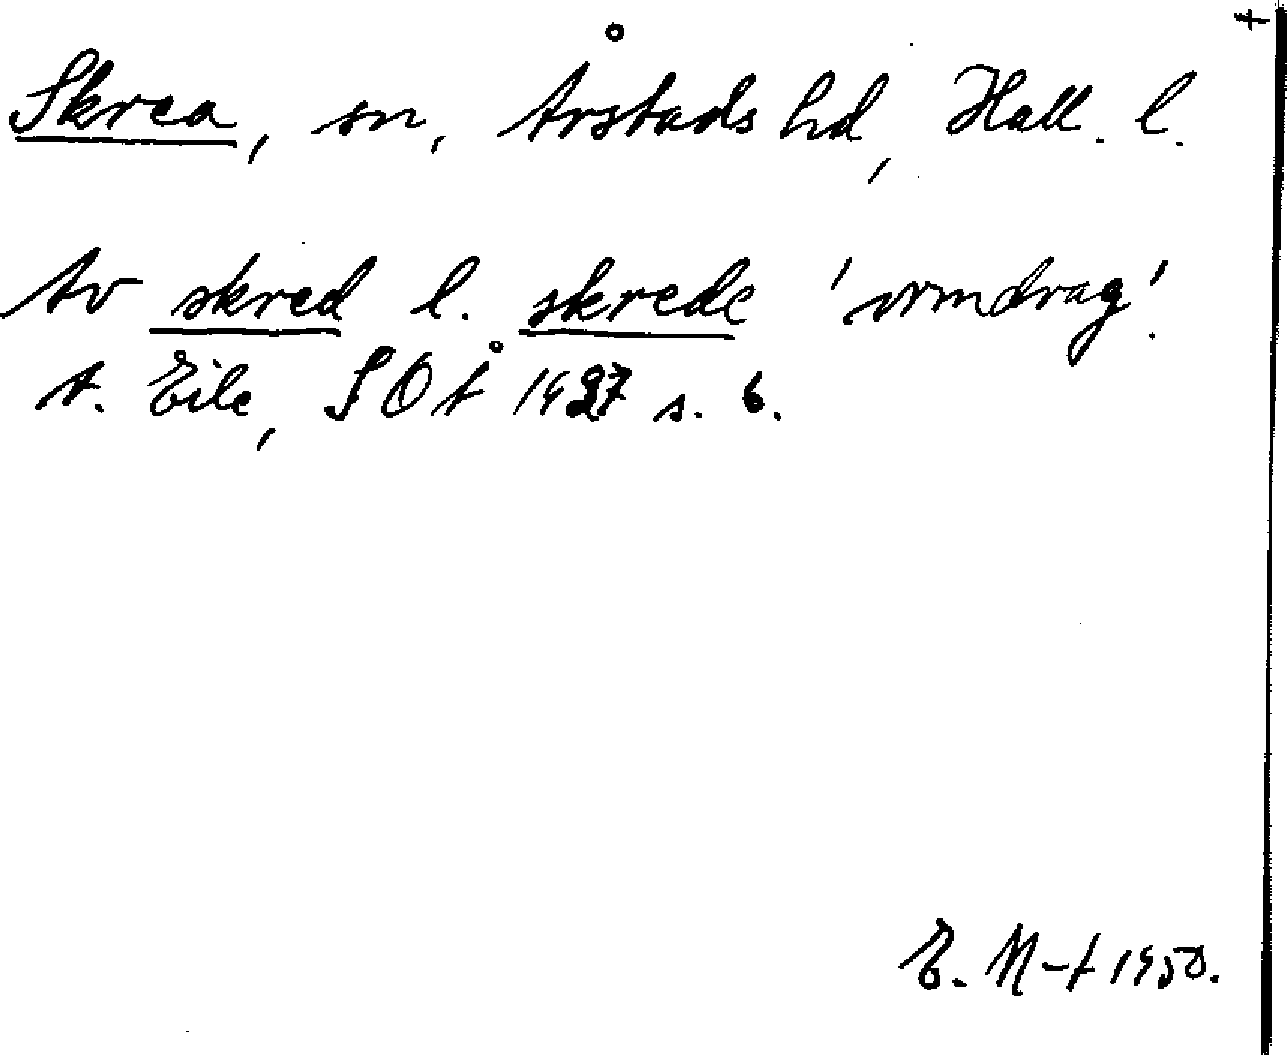 Skrea, sn, Årstads hd, Hall. l.
Av skred l. skrede 'ormdrag'.
A. Eile, SOÅ 1927 s. 6.
E. M-t 1950.